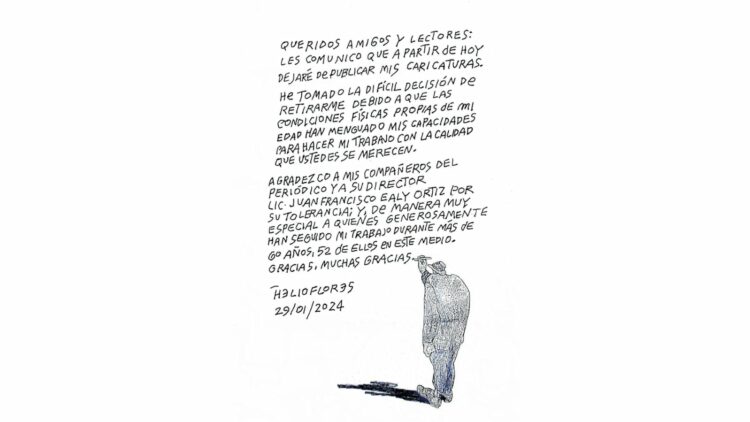 QUERIDOS AMIGOS Y LECTORES:
LES COMUNICO QUE A PARTIR DE HOY
DEJARÉ DE PUBLICAR MIS CARICATURAS.
HE TOMADO LA DIFÍCIL DECISIÓN DE
RETIRARME DEBIDO A QUE LAS
CONDICIONES FÍSICAS PROPIAS DE MI
EDAD HAN MENGUADO MIS CAPACIDADES
PARA HACER MI TRABAJO CON LA CALIDAD
QUE USTEDES SE MERECEN.
AGRADEZCO A MIS COMPAÑEROS DEL
PERIÓDICO Y A SU DIRECTOR
LIC. JUAN FRANCISCO EALY ORTIZ POR
SU TOLERANCIA; Y, DE MANERA MUY
ESPECIAL A QUIENES GENEROSAMENTE
HAN SEGUIDO MI TRABAJO DURANTE MÁS DE
60 AÑOS, 52 DE ELLOS EN ESTE MEDIO.
GRACIAS, MUCHAS GRACIAS
HELIOFLORES
29/01/2024